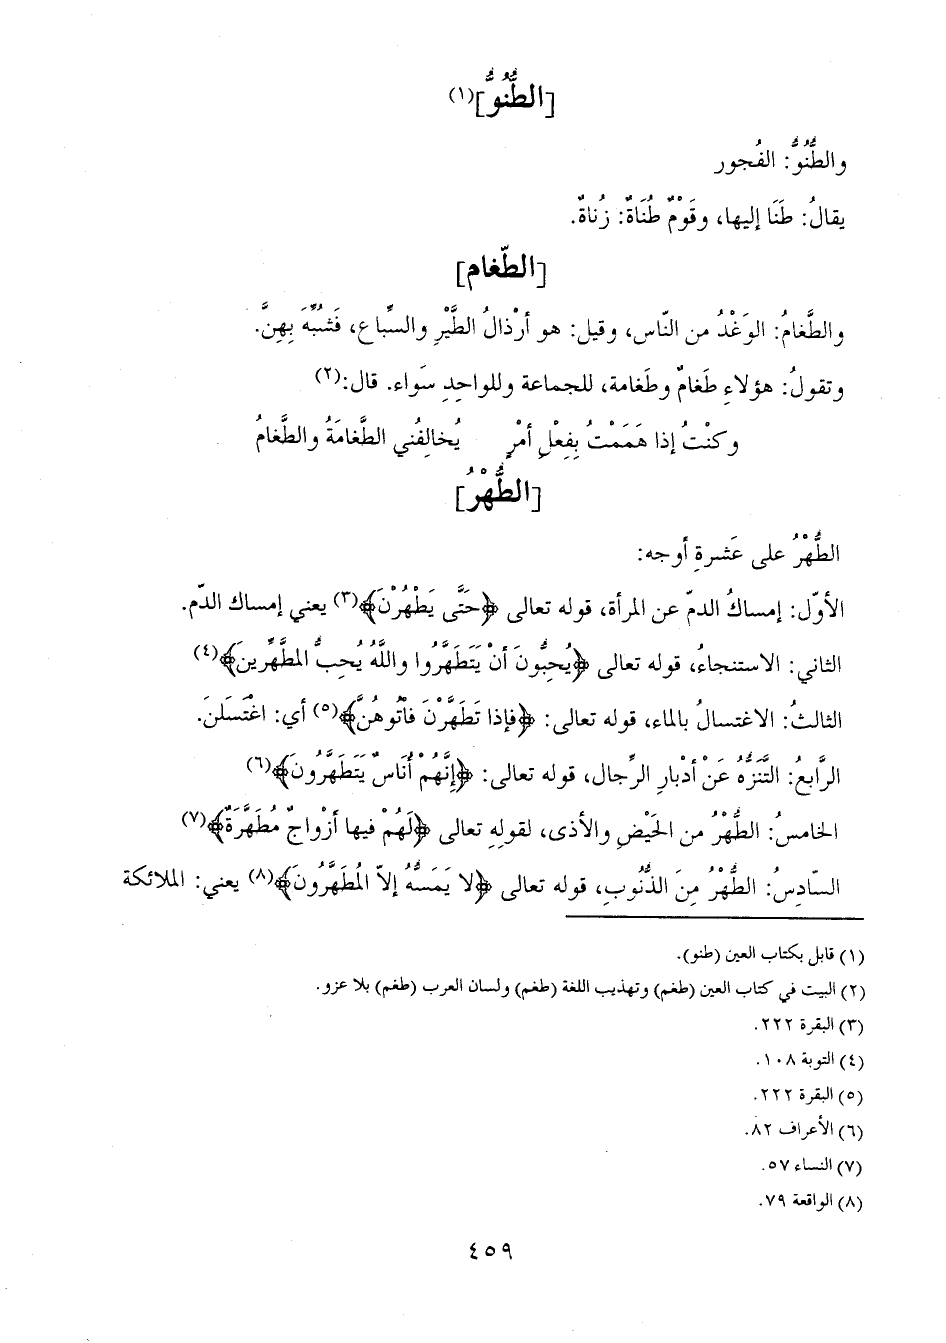 [الطُّنُوُّ](١)
والطُّنُوُّ: الفُجور
يقالُ: طَنَا إليها، وقَوْمٌ طُنَاةٌ: زُناةٌ.
[الطّغام]
والطَّغامُ: الوَغْدُ من النّاس، وقيل: هو أرْذالُ الطَّيْرِ والسِّباع، فَشُبِّهَ بِهِنَّ.
وتقولُ: هؤلاءِ طَغامٌ وطَغامة، للجماعة وللواحِدِ سَواء. قال:(٢)
وكنْتُ إذا هَمَمْتُ بِفِعْلِ أمْرٍ يُخالِفُني الطَّغامَةُ والطَّغامُ
[الطُّهْرُ]
الطُّهْرُ على عَشرةِ أوجه:
الأوّل: إمساكُ الدمّ عن المرأة، قوله تعالى ﴿حَتَّى يَطْهُرْنَ﴾(٣) يعني إمساك الدّم.
الثاني: الاستنجاءُ، قوله تعالى ﴿يُحِبُّونَ أنْ يَتَطَهَّرُوا واللَّهُ يُحِبُّ المطَّهِّرينَ﴾(٤)
الثالثُ: الاغتسالُ بالماء، قوله تعالى: ﴿فإذا تَطَهَّرْنَ فأْتُوهُنَّ﴾(٥) أي: اغْتَسَلنَ.
الرَّابعُ: التَّنَزُّهُ عَنْ أدْبارِ الرِّجال، قوله تعالى: ﴿إنَّهُمْ أُنَاسٌ يَتَطَهَّرُونَ﴾(٦)
الخامسُ: الطُّهْرُ من الحَيْضِ والأذى، لقولِهِ تعالى ﴿لَهُمْ فيها أزْواجٌ مُطَهَّرَةٌ﴾(٧)
السّادِسُ: الطُّهْرُ مِنَ الذُّنُوبِ، قوله تعالى ﴿لا يَمَسُّهُ إلاّ المُطَهَّرُونَ﴾(٨) يعني: الملائكة
(١) قابل بكتاب العين (طنو).
(٢) البيت في كتاب العين (طغم) وتهذيب اللغة (طغم) ولسان العرب (طغم) بلا عزو.
(٣) البقرة ٢٢٢.
(٤) التوبة ١٠٨.
(٥) البقرة ٢٢٢.
(٦) الأعراف ٨٢.
(٧) النساء ٥٧.
(٨) الواقعة ٧٩.
٤٥٩